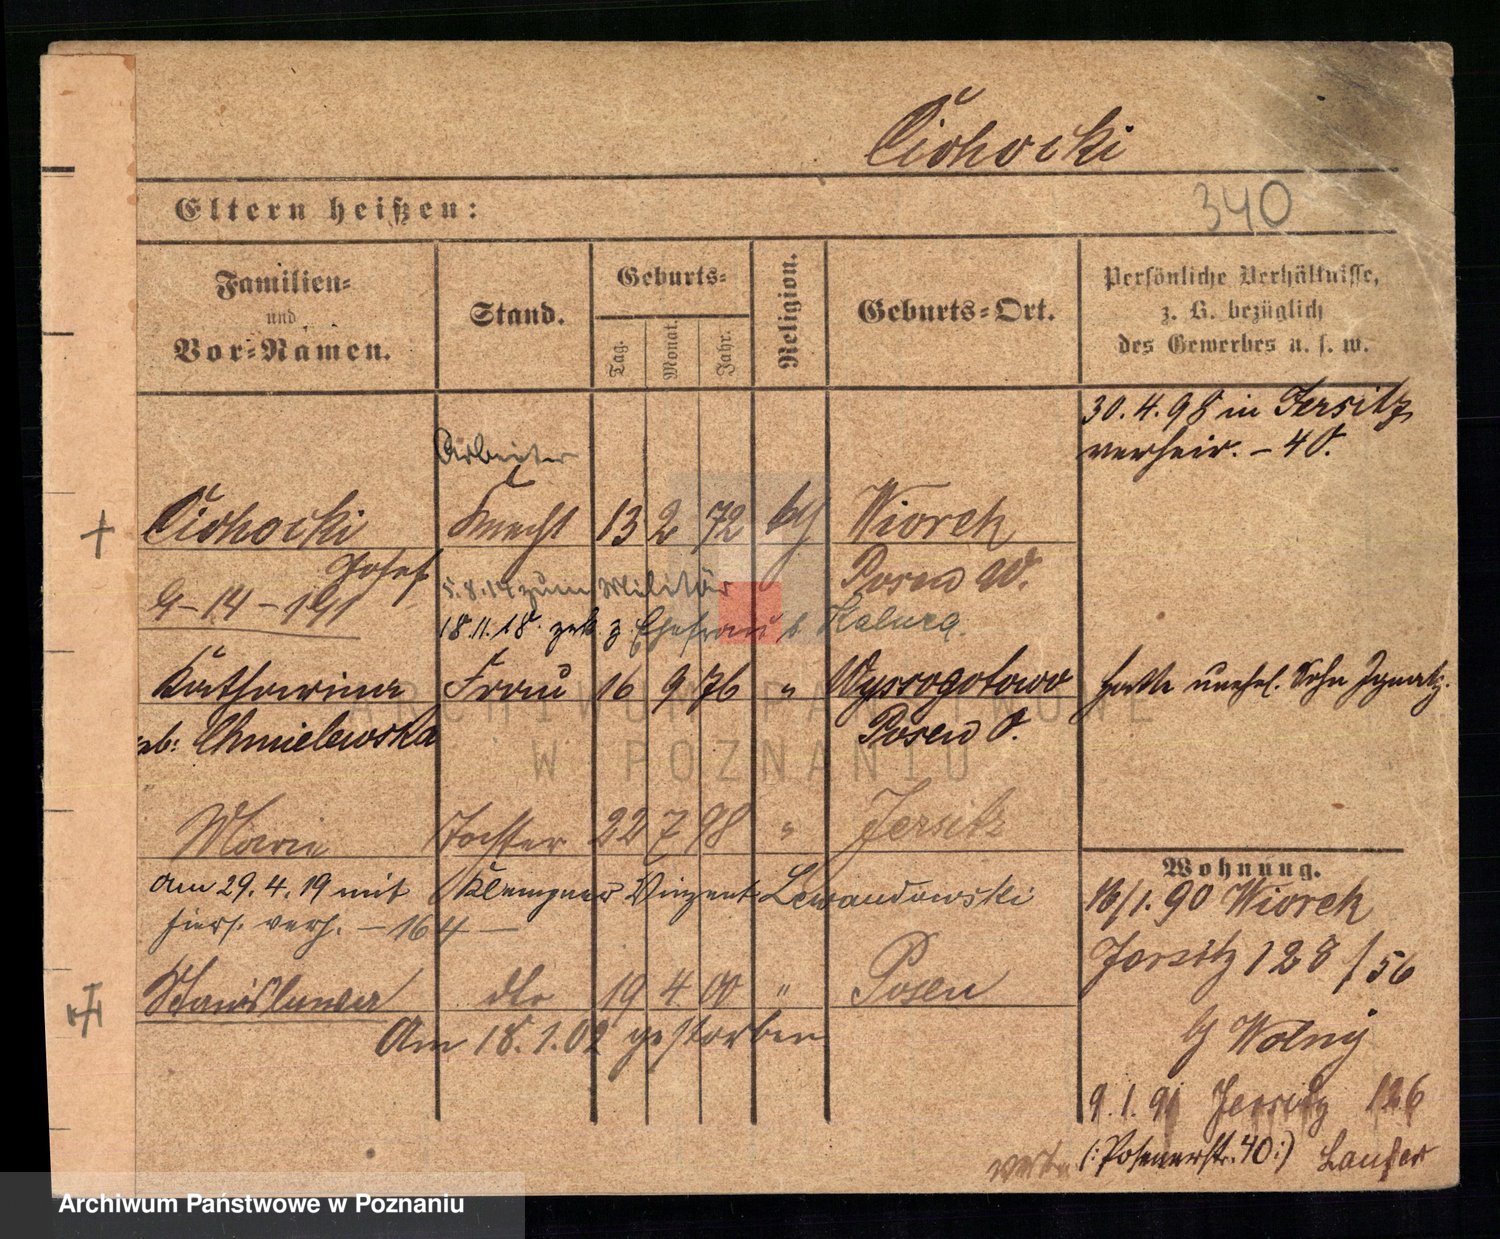 Cichocki
340
Eltern heißen:
Familien-
und
Vor-Namen.
Stand.
Geburts-
Tag.
Monat.
Jahr.
Religion.
Geburts-Ort.
Persönliche Verhältnisse,
z. B. bezüglich
des Gewerbes u. s. w.
30. 4. 98 in Jersitz
verheir. – 40.
Arbeiter
Cichocki Knecht 13 2 72 Wiorek
Josef Posen W.
9–14–191
5.8.14 zum Militär
18.11.18. zrk. z. Ehefrau
Katharina Frau 16 9 76 " Wyssogotowo hatte unehel. Sohn Ignatz.
geb: Chmielewska Posen O.
Marie Tochter 22 7 98 " Jersitz
am 29. 4. 19 mit Klempner Vinzent Lewandowski
hiers. verh. – 164 –
Stanislawa dto 19 4 00 " Posen
Am 18. 1. 02 gestorben
Wohnung.
16/1. 90 Wiorek
Jersitz 128 / 56
Wolny
9. 1. 91 Jersitz 126
(:Posenerstr. 40:) Laufer
ARCHIWUM PAŃSTWOWE
W POZNANIU
Archiwum Państwowe w Poznaniu